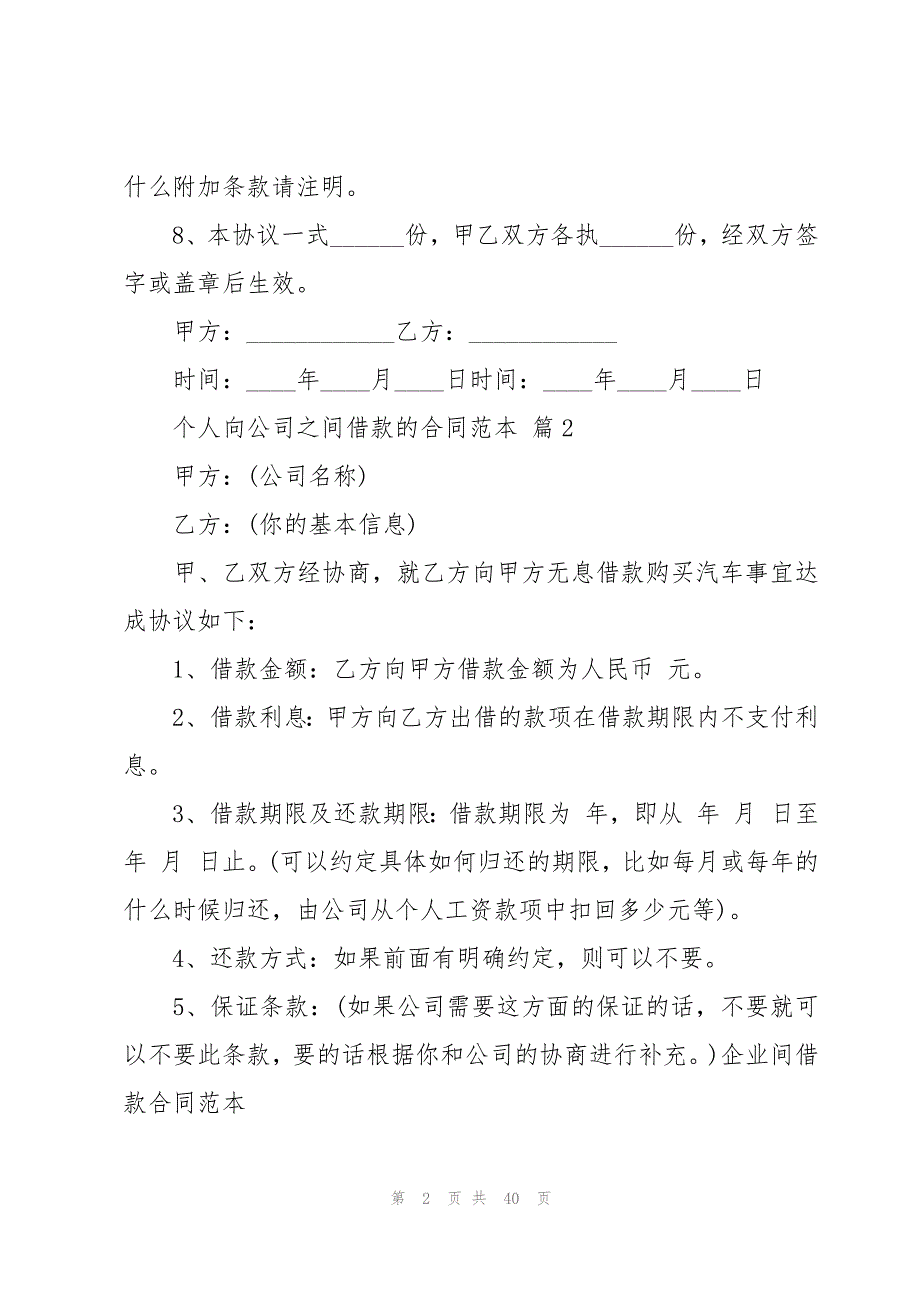 什么附加条款请注明。
8、本协议一式______份，甲乙双方各执______份，经双方签
字或盖章后生效。
甲方：____________乙方：____________
时间：____年____月____日时间：____年____月____日
个人向公司之间借款的合同范本 篇2
甲方：(公司名称)
乙方：(你的基本信息)
甲、乙双方经协商，就乙方向甲方无息借款购买汽车事宜达
成协议如下：
1、借款金额：乙方向甲方借款金额为人民币 元。
2、借款利息：甲方向乙方出借的款项在借款期限内不支付利
息。
3、借款期限及还款期限：借款期限为 年，即从 年 月 日至
年 月 日止。(可以约定具体如何归还的期限，比如每月或每年的
什么时候归还，由公司从个人工资款项中扣回多少元等)。
4、还款方式：如果前面有明确约定，则可以不要。
5、保证条款：(如果公司需要这方面的保证的话，不要就可
以不要此条款，要的话根据你和公司的协商进行补充。)企业间借
款合同范本
第 2 页 共 40 页